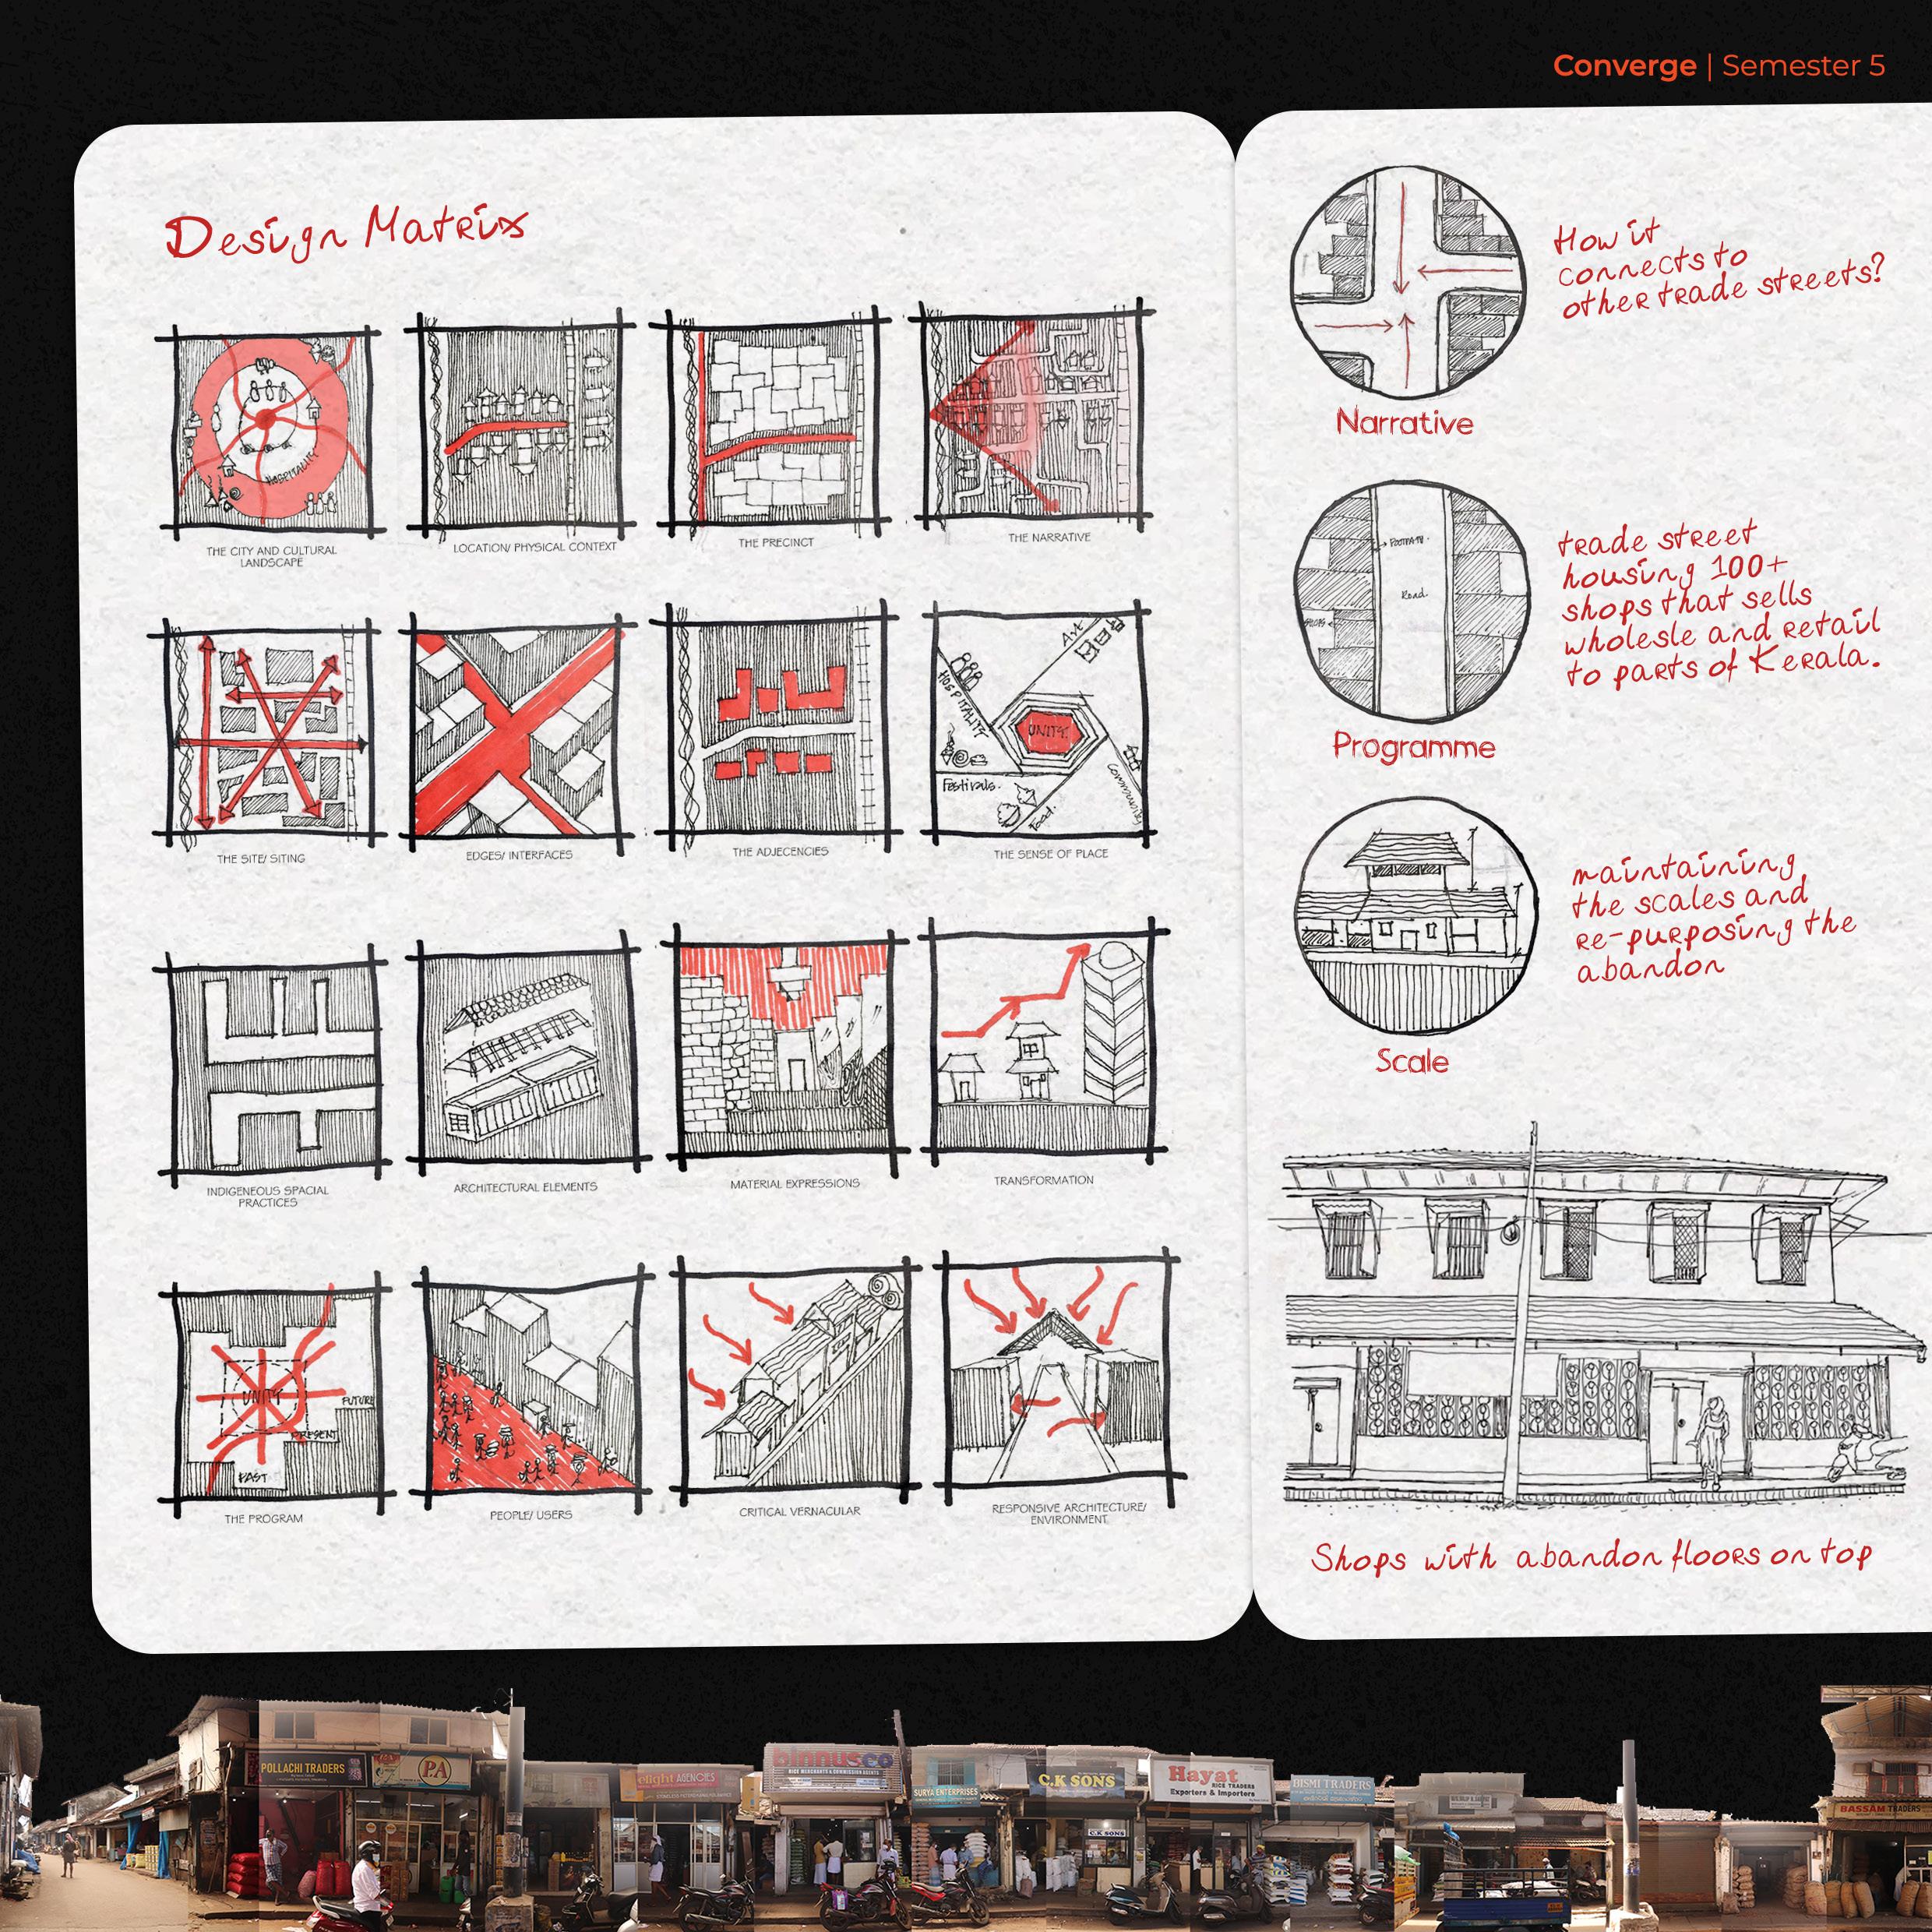 Converge | Semester 5
Design Matrix
HOSPITALITY
THE CITY AND CULTURAL
LANDSCAPE
LOCATION/ PHYSICAL CONTEXT
THE PRECINCT
THE NARRATIVE
THE SITE/ SITING
EDGES/ INTERFACES
THE ADJECENCIES
Art
HOSPITALITY
UNITY
Festivals.
Food.
Community
THE SENSE OF PLACE
INDIGENEOUS SPACIAL
PRACTICES
ARCHITECTURAL ELEMENTS
MATERIAL EXPRESSIONS
TRANSFORMATION
UNITY
FUTURE
PRESENT
PAST
THE PROGRAM
PEOPLE/ USERS
CRITICAL VERNACULAR
RESPONSIVE ARCHITECTURE/
ENVIRONMENT
How it
connects to
other trade streets?
Narrative
FOOTPATH.
Road.
SHOPS
trade street
housing 100+
shops that sells
wholesle and retail
to parts of Kerala.
Programme
maintaining
the scales and
re-purposing the
abandon
Scale
Shops with abandon floors on top
POLLACHI TRADERS
PA
elight AGENCIES
binnusco
RICE MERCHANTS & COMMISSION AGENTS
SURYA ENTERPRISES
C.K SONS
C.K SONS
Hayat
RICE TRADERS
Exporters & Importers
BISMI TRADERS
BASSAM TRADERS